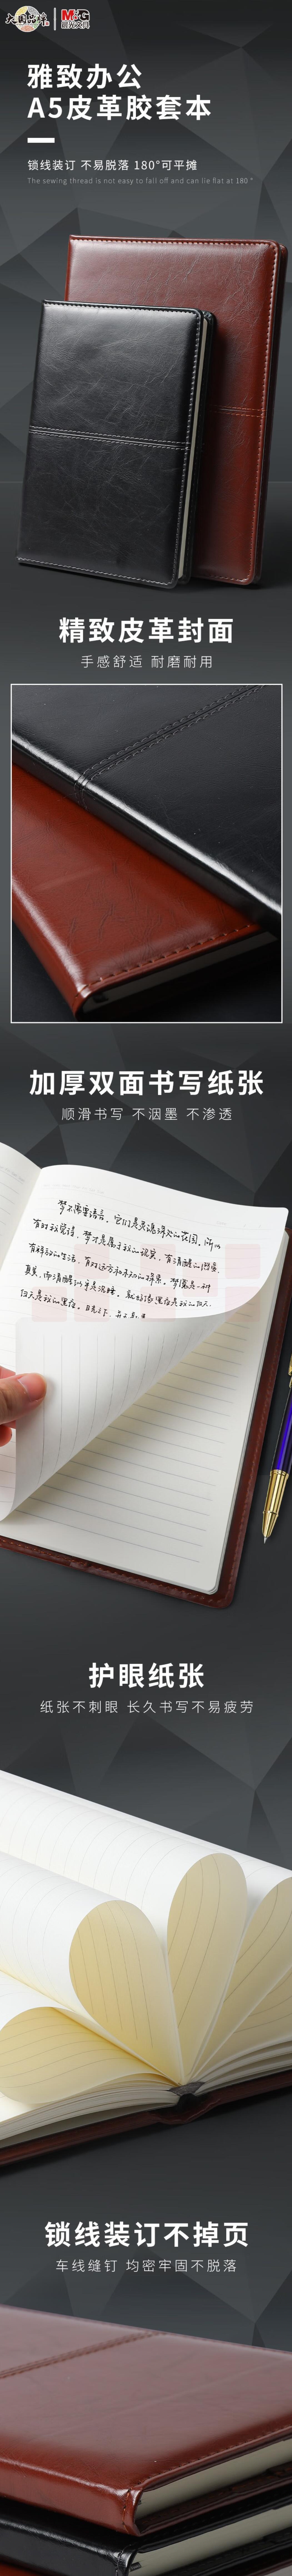 大国品牌
M&G
晨光文具
雅致办公
A5皮革胶套本
锁线装订 不易脱落 180°可平摊
The sewing thread is not easy to fall off and can lie flat at 180 °
精致皮革封面
手感舒适 耐磨耐用
加厚双面书写纸张
顺滑书写 不洇墨 不渗透
梦不需要语言，它们是灵魂深处的花园，所以
有时我觉得，梦才是属于我的现实，有清醒的
真实，而清醒
护眼纸张
纸张不刺眼 长久书写不易疲劳
锁线装订不掉页
车线缝钉 均密牢固不脱落